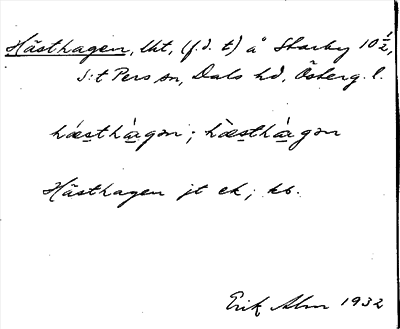 Hästhagen, lht, (f.d. t) å Skarby 10 1/2,
S:t Pers sn, Dals hd, Österg. l.
hæ̀sthàgən; hæ̀sthàgən
Hästhagen jt ek; kb.
Erik Alm 1932